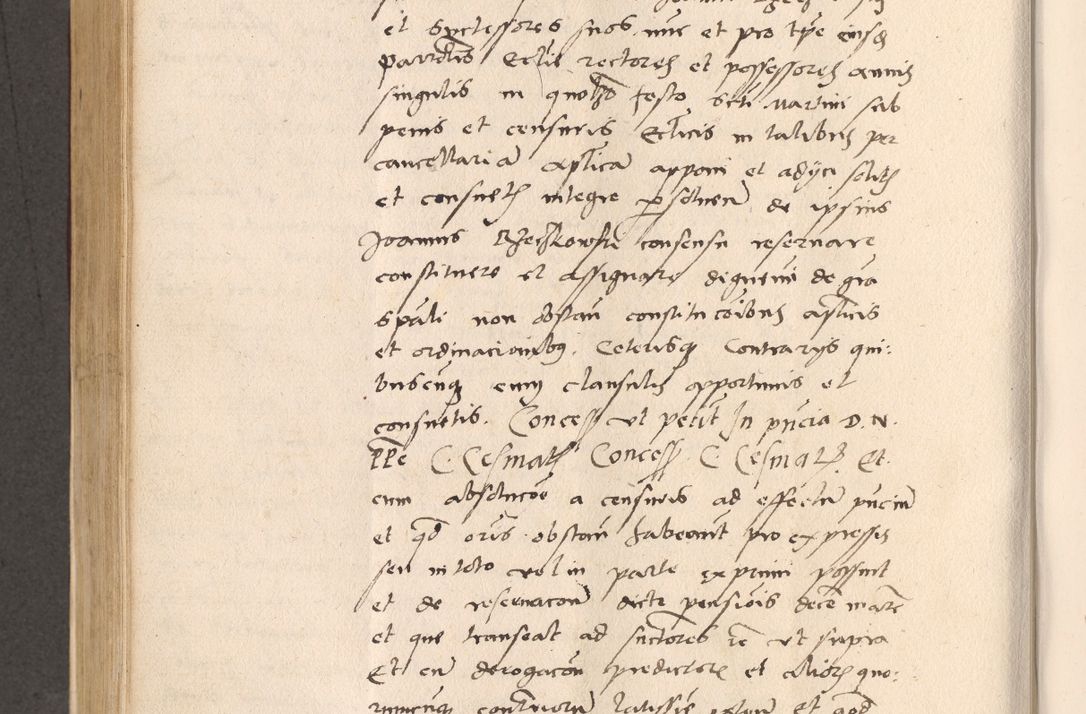 et successores suos nunc et pro tpe eiusd
parrochlis Ecclie rectores et possessores annis
singulis in quolibet festo Scti Martini sub
penis et censuris Ecclicis in talibus per
cancellariam aplicam apponi et adijci solitis
et consuetis integre persoluen de ipsius
Joannis consensu reservare
constituere et assignare dignemi de gra
spali non obstan constitucoibus aplicis
et ordinacionibus. Ceterisq Contrarys qui:
buscunq cum clausulis opportunis et
consuetis. Concess ut petit In pncia D. N.
PPe C. Cesinat Concess C. Cesinat Et
cum absolucoe a censuris ad effectum pncium
et qd oris obstan habeant pro expressis
seu in toto vel in parte exprimi possint
et de reservacon dicte pensiois dece marc
et que transeat ad succtores re ut supra
Et cum derogacon predictor et alior quo:
rumcunq contrarior latissie et qd